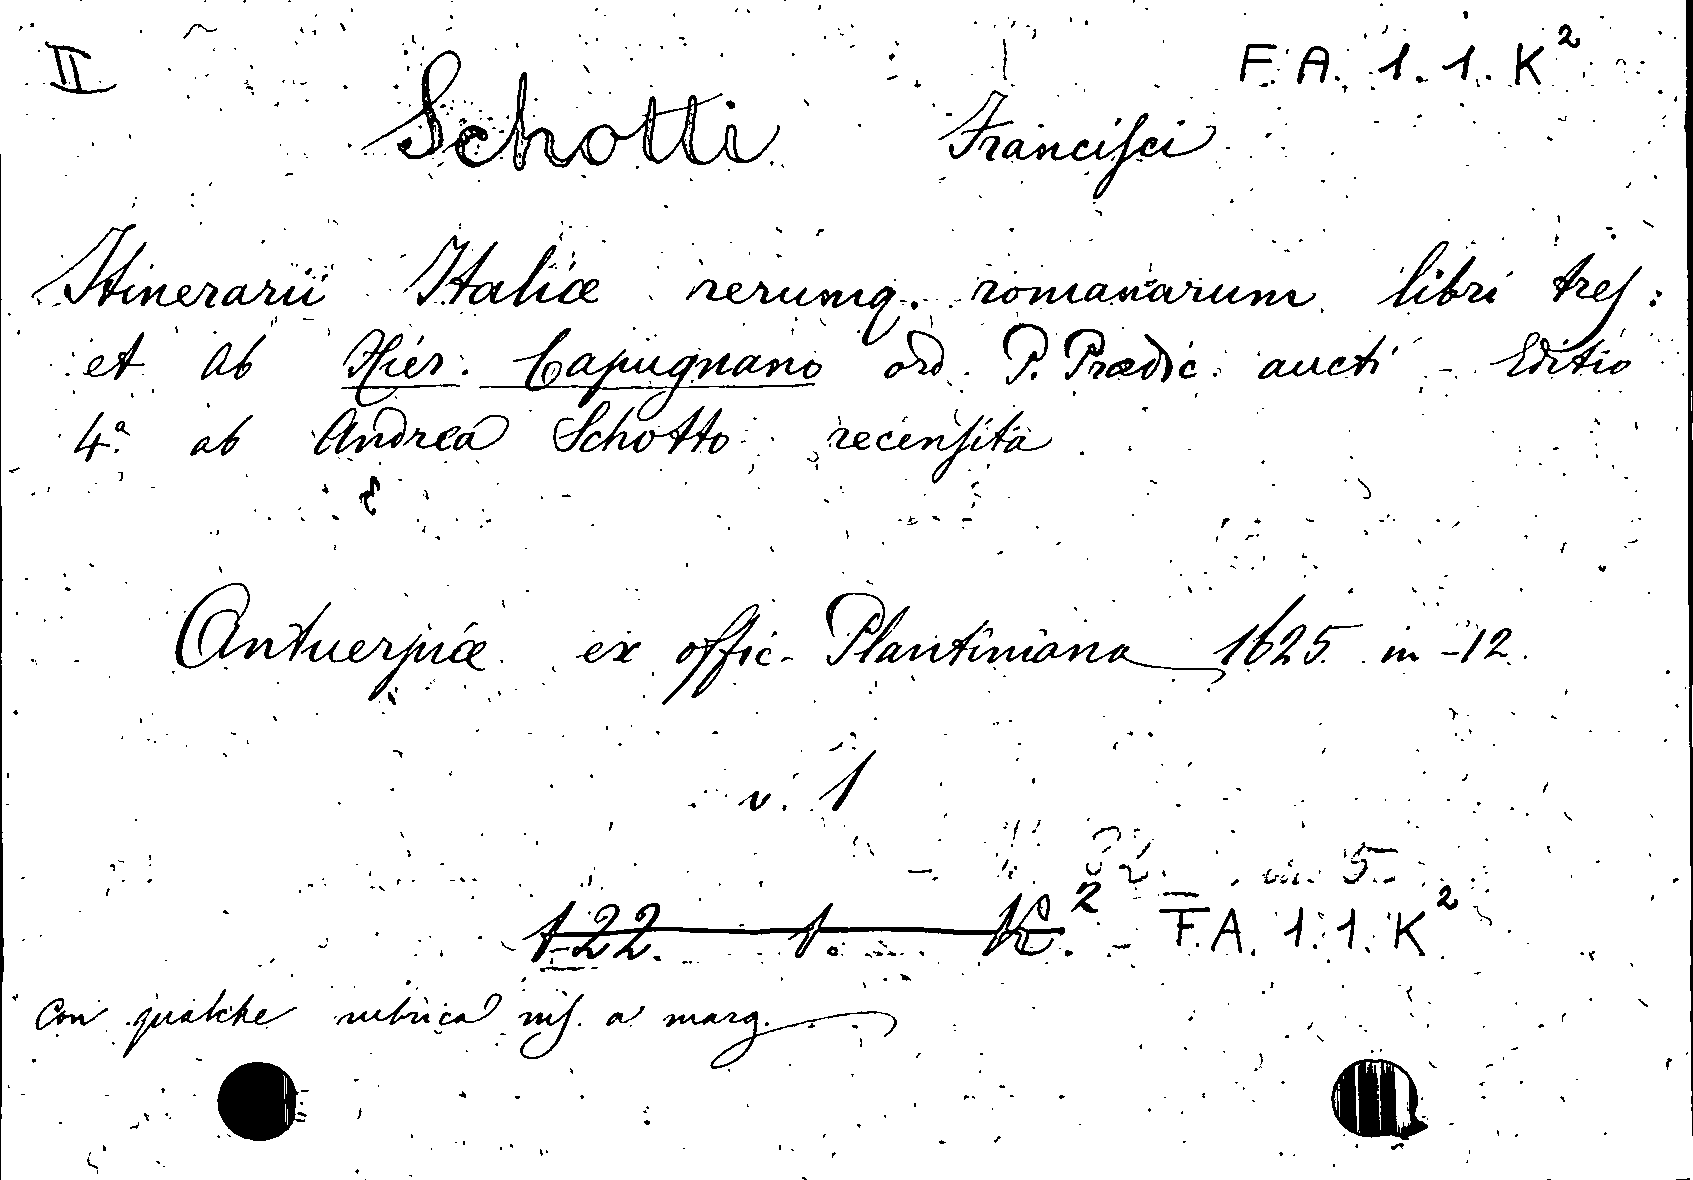 II F. A. 1. 1. K²
Schotti Francisci
Itinerarii Italiæ rerumq. romanarum libri tres:
et ab Hier. Capugnano ord. P. Prædic. aucti Editio
4.ª ab Andrea Schotto recensita
Antuerpiæ ex offic. Plantiniana 1625. in -12.
v. 1
122. 1. K.² - F.A. 1. 1. K²
Con qualche rubrica ms. a marg.